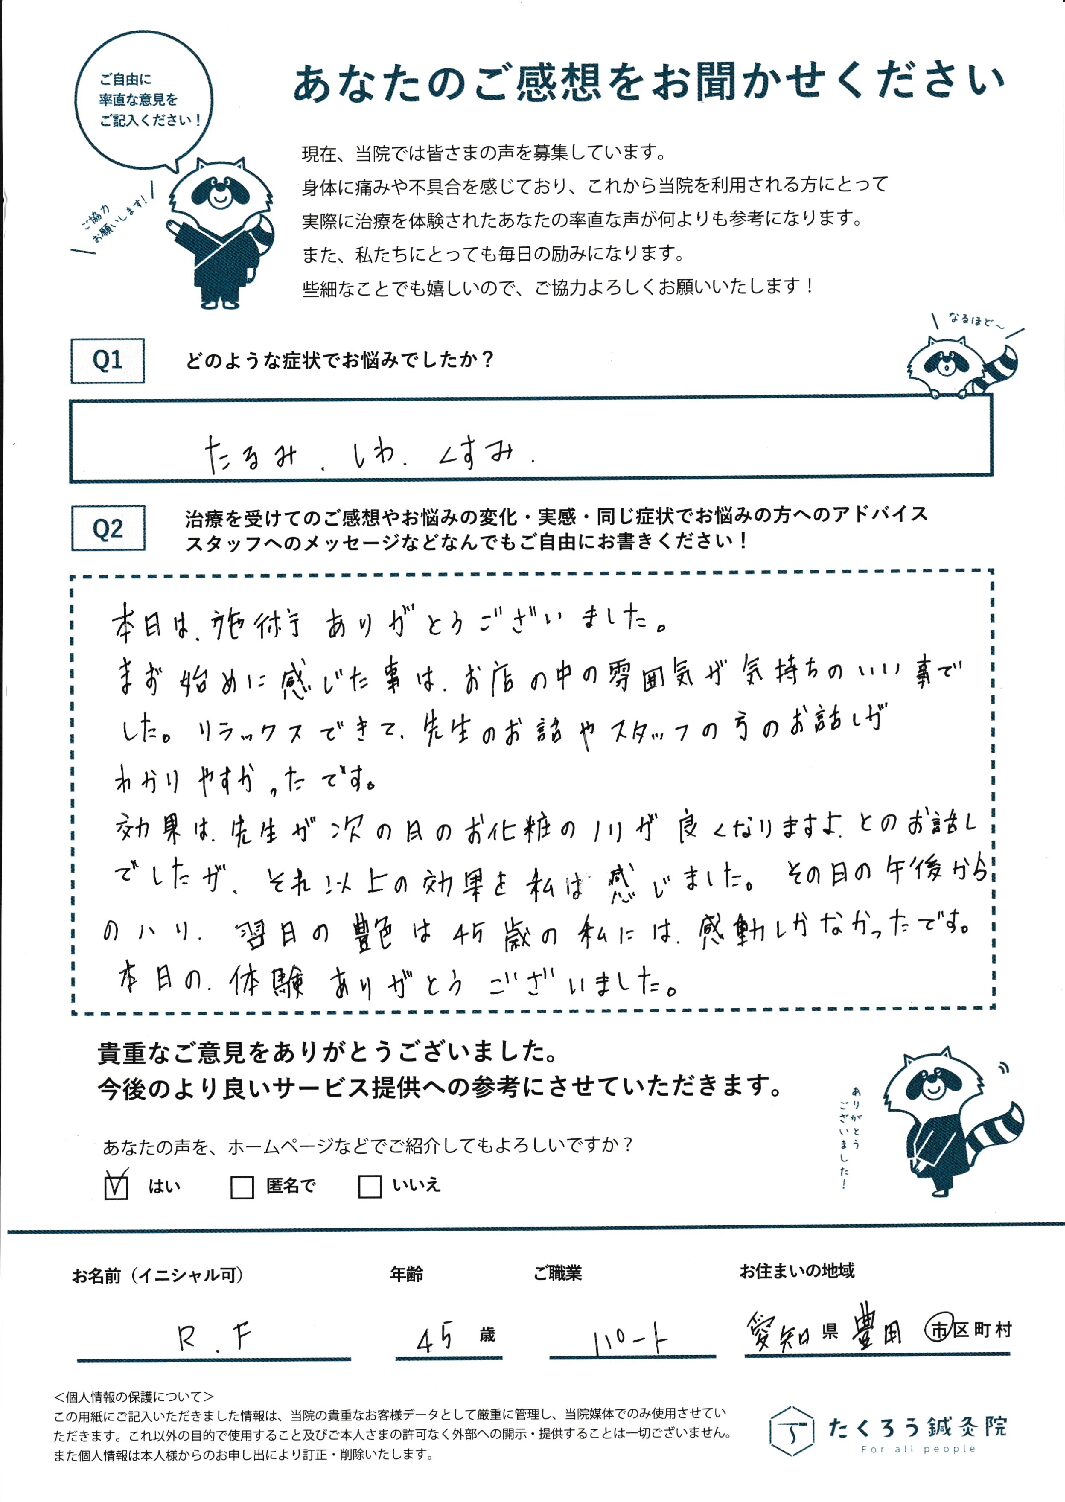 ご自由に
率直な意見を
ご記入ください！
ご協力
お願いします！
あなたのご感想をお聞かせください
現在、当院では皆さまの声を募集しています。
身体に痛みや不具合を感じており、これから当院を利用される方にとって
実際に治療を体験されたあなたの率直な声が何よりも参考になります。
また、私たちにとっても毎日の励みになります。
些細なことでも嬉しいので、ご協力よろしくお願いいたします！
なるほど〜
Q1 どのような症状でお悩みでしたか？
たるみ．しわ．くすみ．
Q2 治療を受けてのご感想やお悩みの変化・実感・同じ症状でお悩みの方へのアドバイス
スタッフへのメッセージなどなんでもご自由にお書きください！
本日は、施術ありがとうございました。
まず始めに感じた事は、お店の中の雰囲気が気持ちのいい事で
した。リラックスできて、先生のお話やスタッフの方のお話しが
わかりやすかったです。
効果は、先生が次の日のお化粧のノリが良くなりますよ、とのお話し
でしたが、それ以上の効果を私は感じました。その日の午後から
のハリ、翌日の艶は45歳の私には、感動しかなかったです。
本日の、体験ありがとうございました。
貴重なご意見をありがとうございました。
今後のより良いサービス提供への参考にさせていただきます。
ありがとう
ございました！
あなたの声を、ホームページなどでご紹介してもよろしいですか？
はい 匿名で いいえ
お名前（イニシャル可） 年齢 ご職業 お住まいの地域
R.F 45 歳 パート 愛知 県 豊田 市区町村
＜個人情報の保護について＞
この用紙にご記入いただきました情報は、当院の貴重なお客様データとして厳重に管理し、当院媒体でのみ使用させてい
ただきます。これ以外の目的で使用すること及びご本人さまの許可なく外部への開示・提供することは一切ございません。
また個人情報は本人様からのお申し出により訂正・削除いたします。
たくろう鍼灸院
For all people